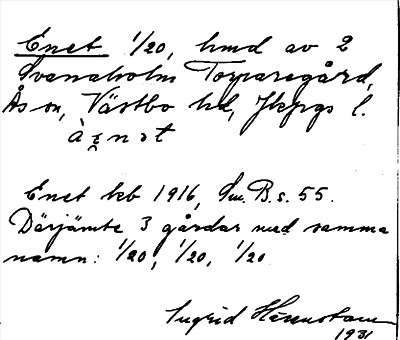 Enet 1/20, hmd av 2
Svanaholm Torparegård,
Ås sn, Västbo hd, Jkpgs l.
Enet kb 1916, Sm. B. s. 55.
Därjämte 3 gårdar med samma
namn: 1/20, 1/20, 1/20
Ingrid
1931